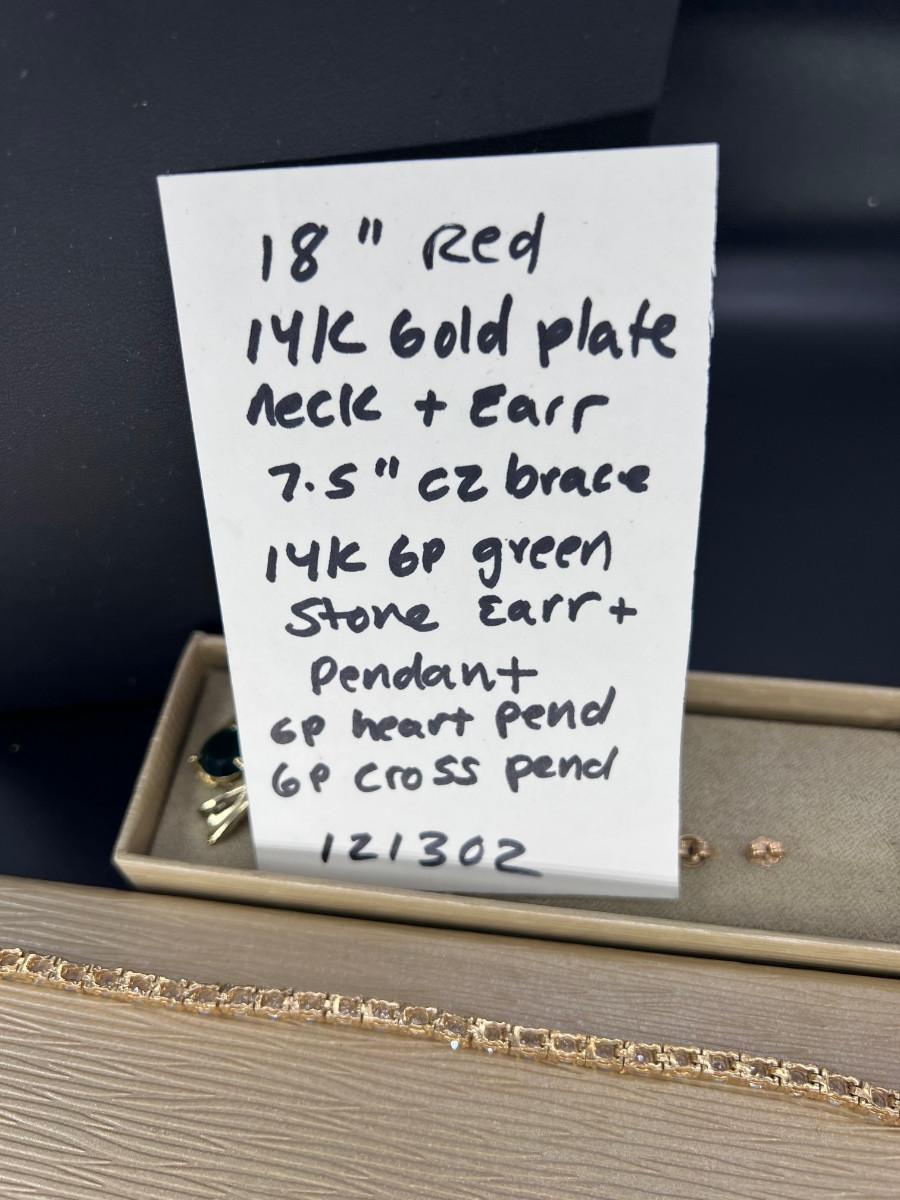 18" Red
14K Gold plate
neck + Earr
7.5" CZ brace
14K GP green
Stone Earr +
Pendant
GP heart pend
GP cross pend
121302